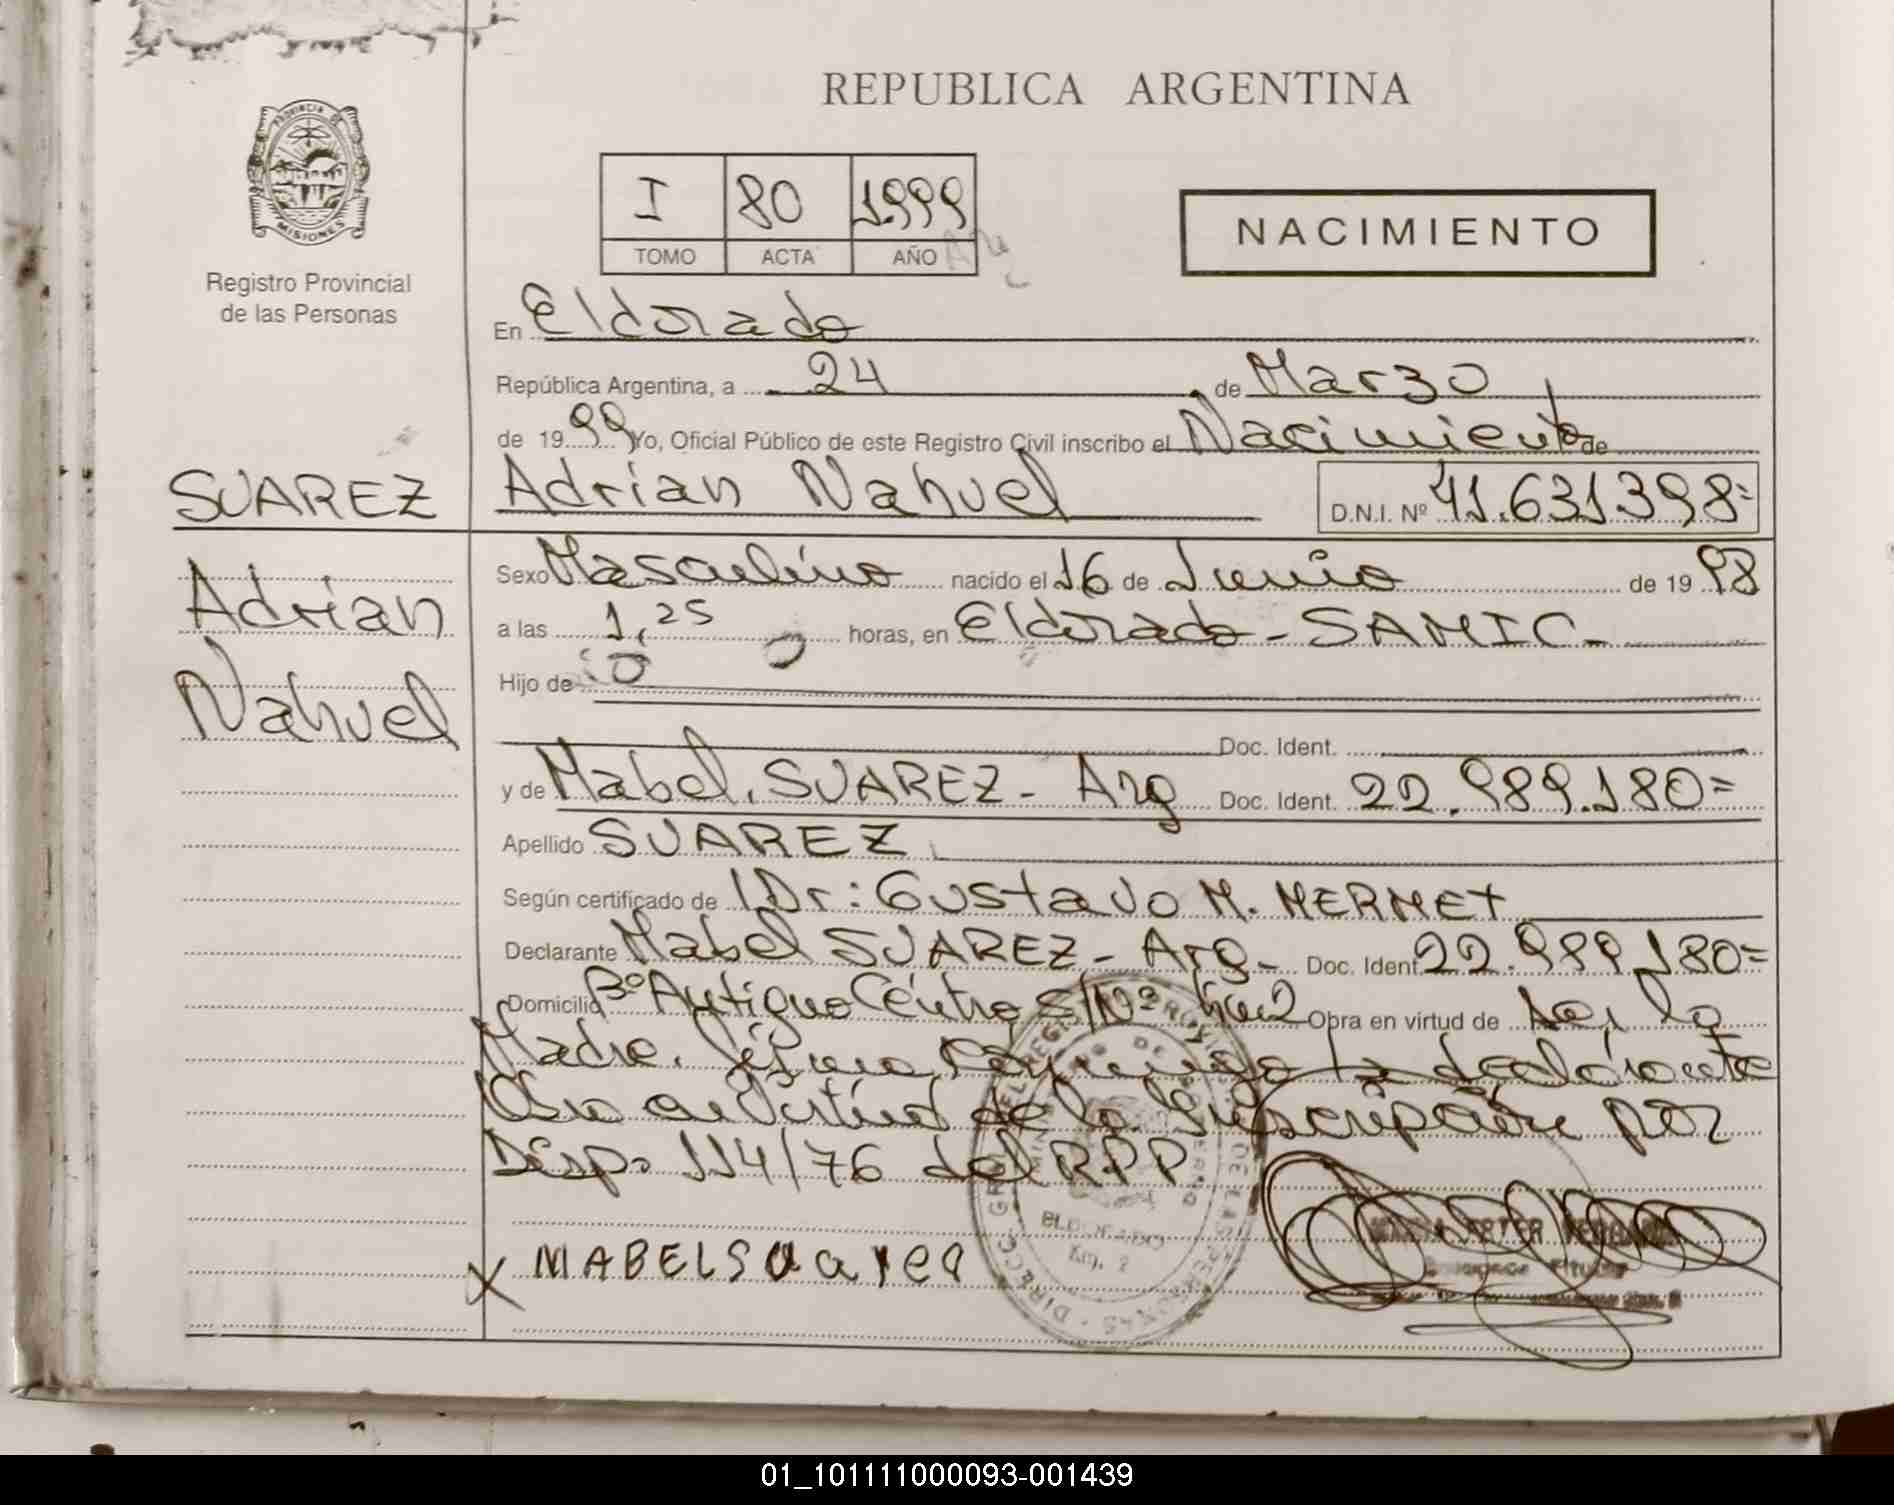 REPUBLICA ARGENTINA
PROVINCIA DE
MISIONES
Registro Provincial
de las Personas
I 80 1.999
TOMO ACTA AÑO
NACIMIENTO
En Eldorado
República Argentina, a 24 de Marzo
de 1999 Yo, Oficial Público de este Registro Civil inscribo el Nacimiento de
SUAREZ Adrian Nahuel D.N.I. Nº 41.631.398=
Adrian
Nahuel
Sexo Masculino nacido el 16 de Junio de 1998
a las 1,25 horas, en Eldorado - SAMIC -
Hijo de
Doc. Ident.
y de Mabel. SUAREZ - Arg Doc. Ident. 22.989.180=
Apellido SUAREZ
Según certificado de Dr: Gustavo M. MERMET
Declarante Mabel SUAREZ - Arg - Doc. Ident 22.989.180=
Domicilio Bº Antiguo Centro S/Nº Km2 Obra en virtud de Ser la
Madre. la declarante
Obra en Virtud de la Inscripción por
Disp. 114/76 del RPP
ELDORADO
Km. 2
X MABEL Suarez
01_101111000093-001439